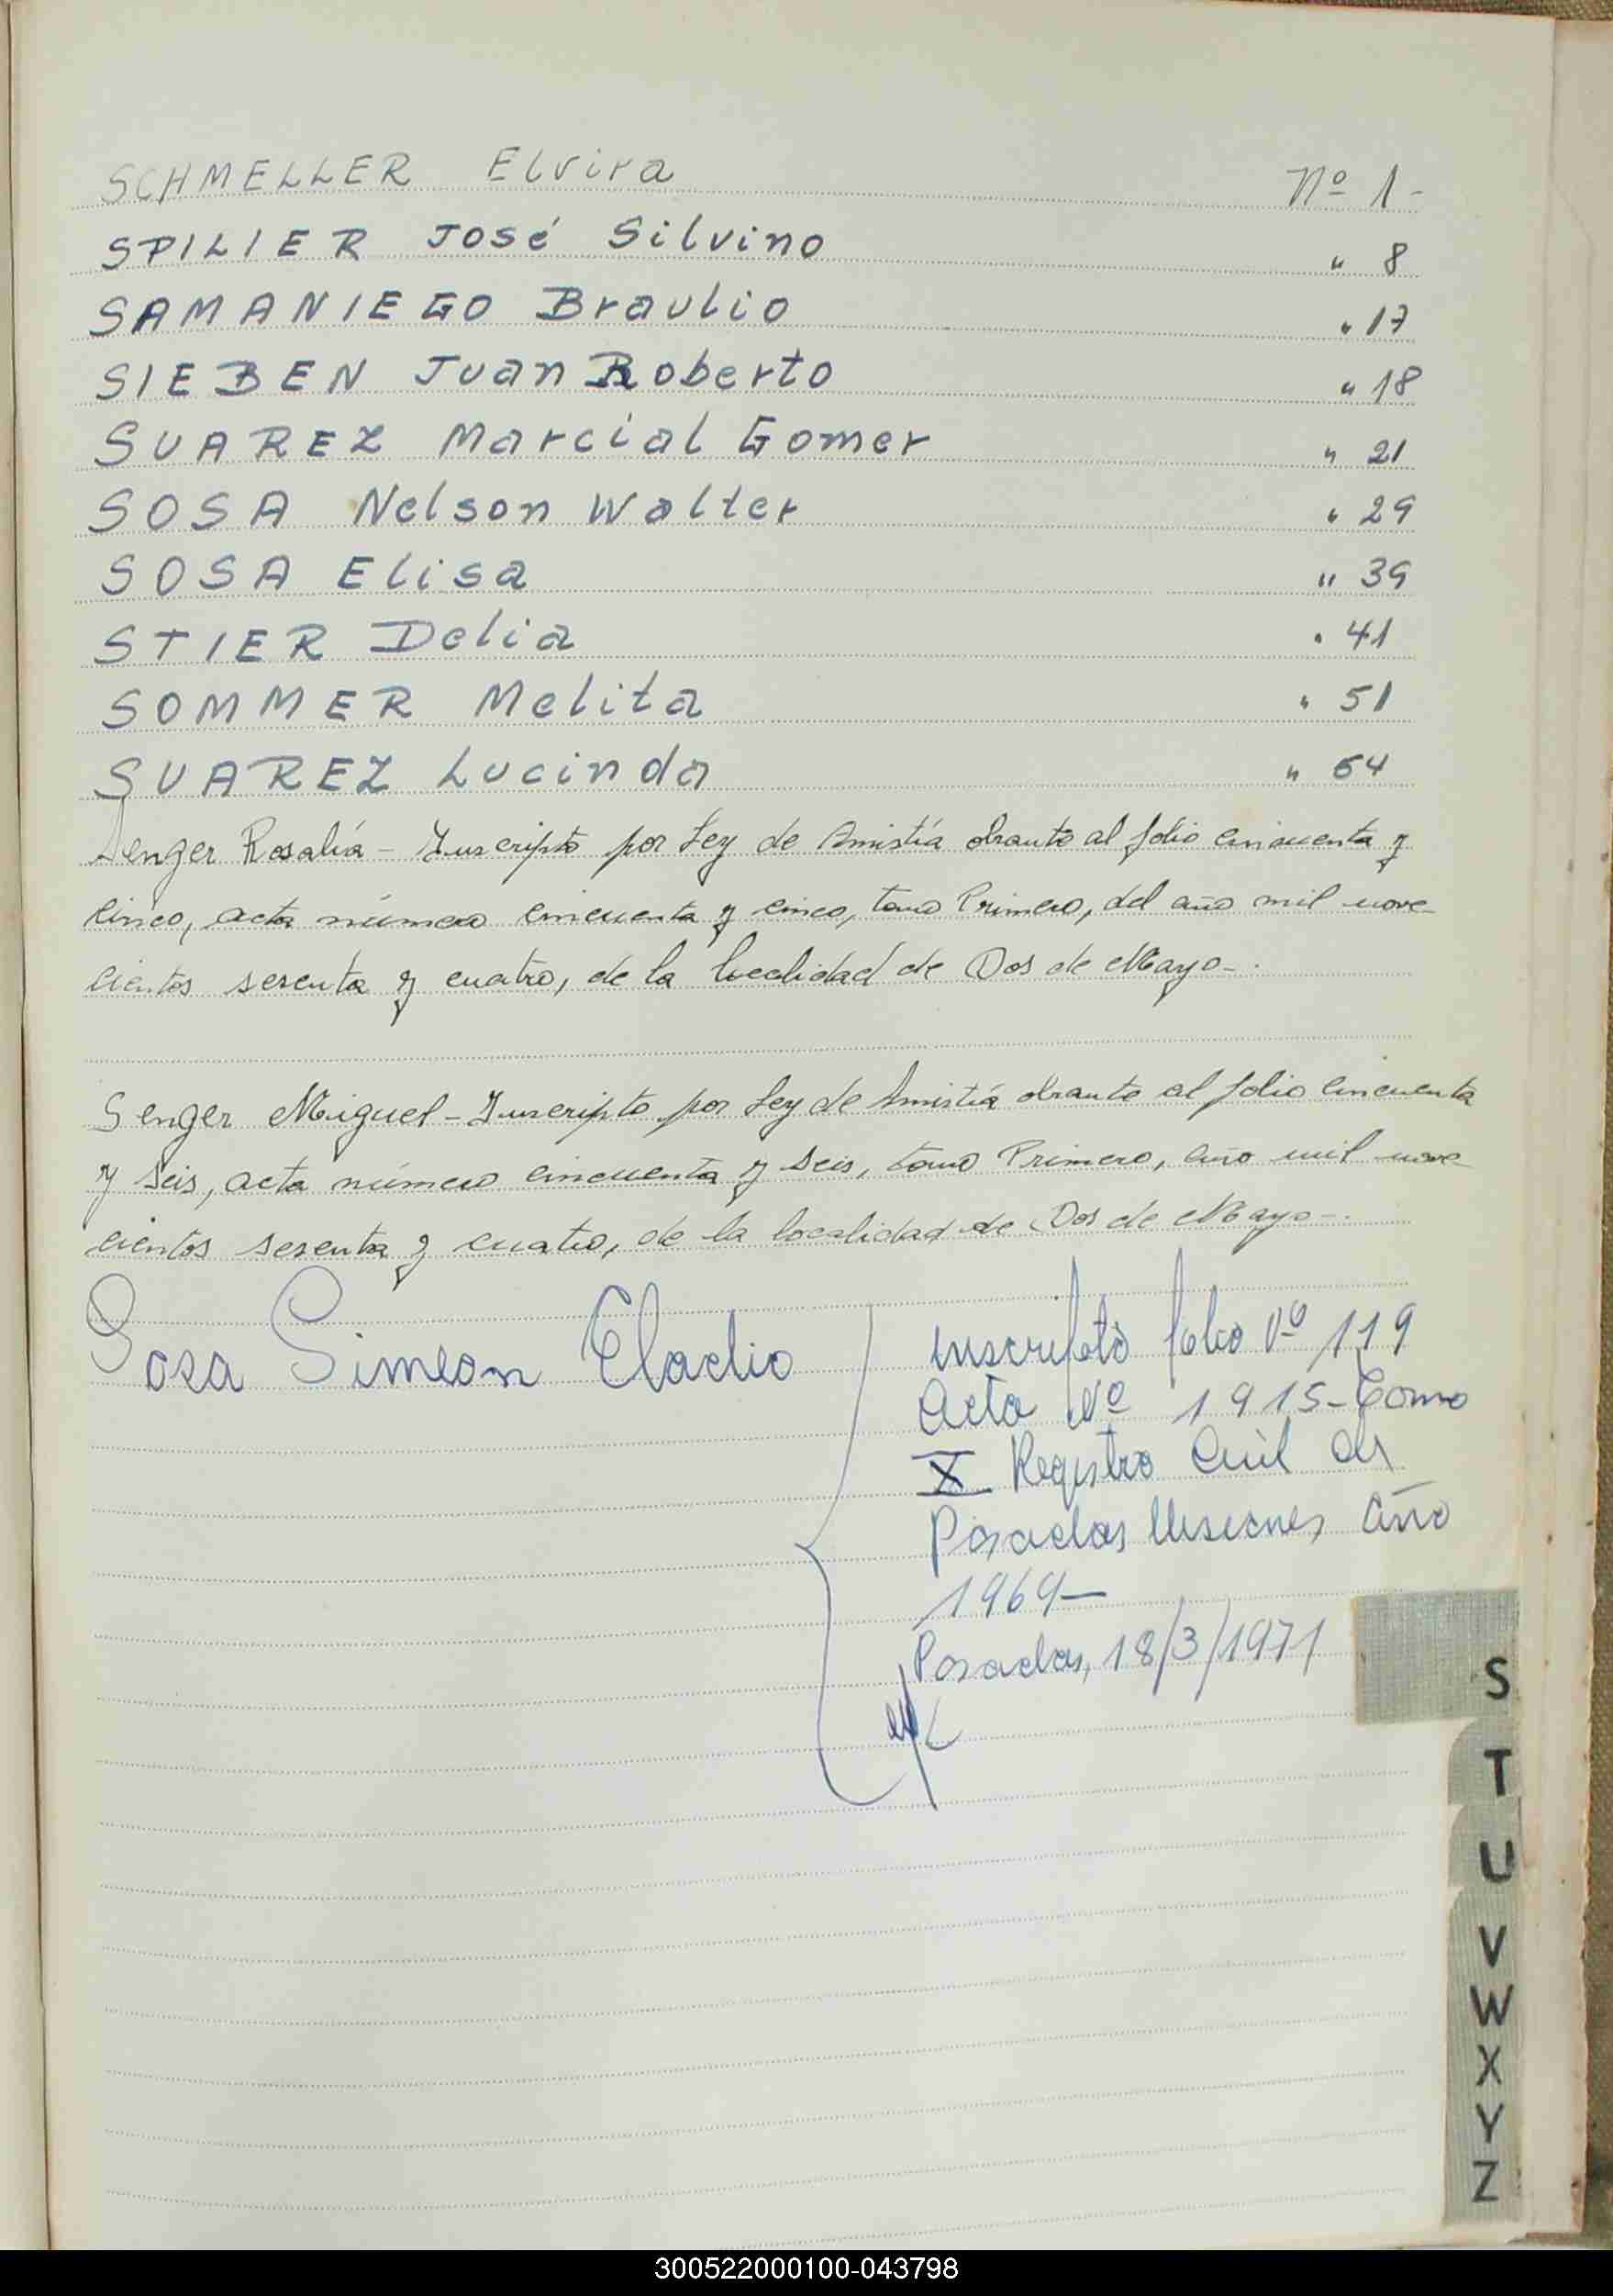 SCHMELLER Elvira Nº 1-
SPILIER José Silvino " 8
SAMANIEGO Braulio " 17
SIEBEN Juan Roberto " 18
SUAREZ Marcial Gomer " 21
SOSA Nelson Walter " 29
SOSA Elisa " 39
STIER Delia " 41
SOMMER Melita " 51
SUAREZ Lucinda " 64
Senger Rosalía - Inscripto por Ley de Amistía obrante al folio cincuenta y
cinco, acta número cincuenta y cinco, tomo Primero, del año mil nove-
cientos sesenta y cuatro, de la localidad de Dos de Mayo-.
Senger Miguel - Inscripto por Ley de Amistía obrante al folio cincuenta
y seis, acta número cincuenta y seis, tomo Primero, año mil nove-
cientos sesenta y cuatro, de la localidad de Dos de Mayo-.
Sosa Simeon Eladio
inscripto folio Nº 119
Acta Nº 1915- Tomo
X Registro Civil de
Posadas Misiones año
1969-
Posadas, 18/3/1971
S
T
U
V
W
X
Y
Z
300522000100-043798